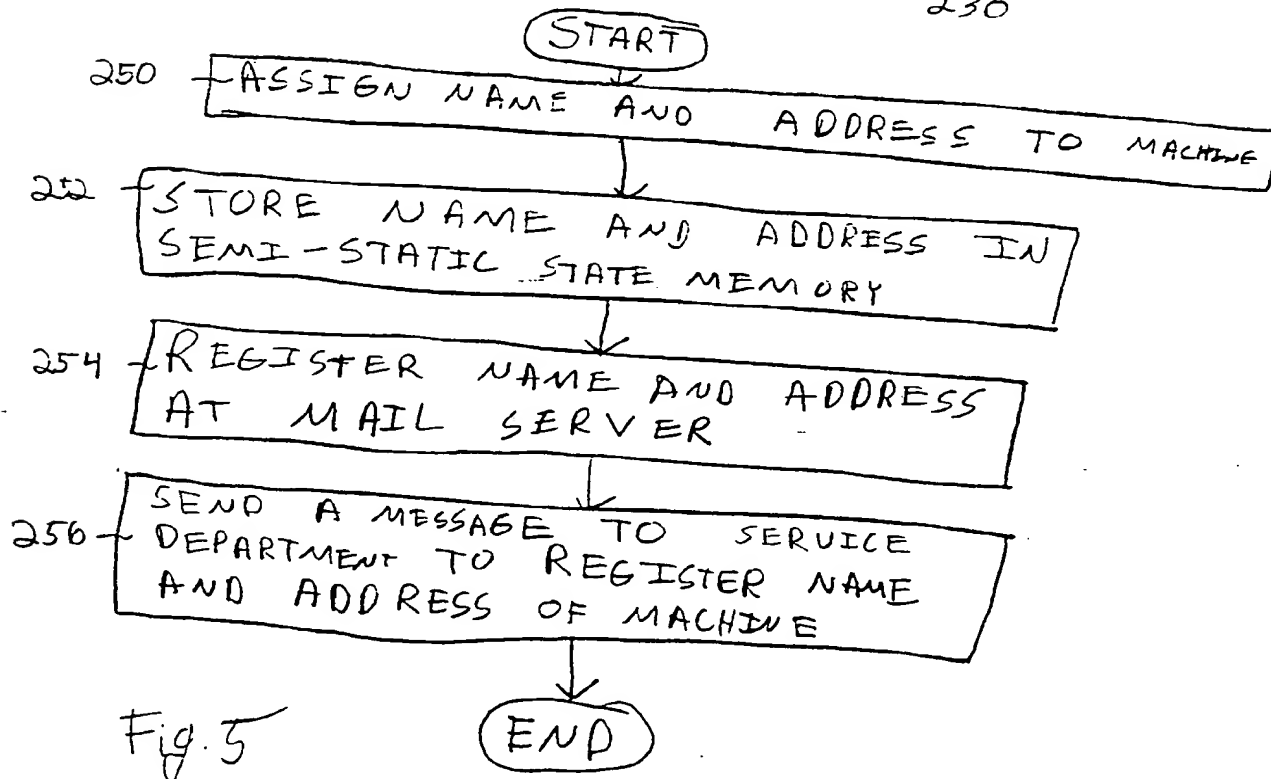 230
START
250 ASSIGN NAME AND ADDRESS TO MACHINE
252 STORE NAME AND ADDRESS IN
SEMI-STATIC STATE MEMORY
254 REGISTER NAME AND ADDRESS
AT MAIL SERVER
SEND A MESSAGE TO SERVICE
256 DEPARTMENT TO REGISTER NAME
AND ADDRESS OF MACHINE
END
Fig. 5